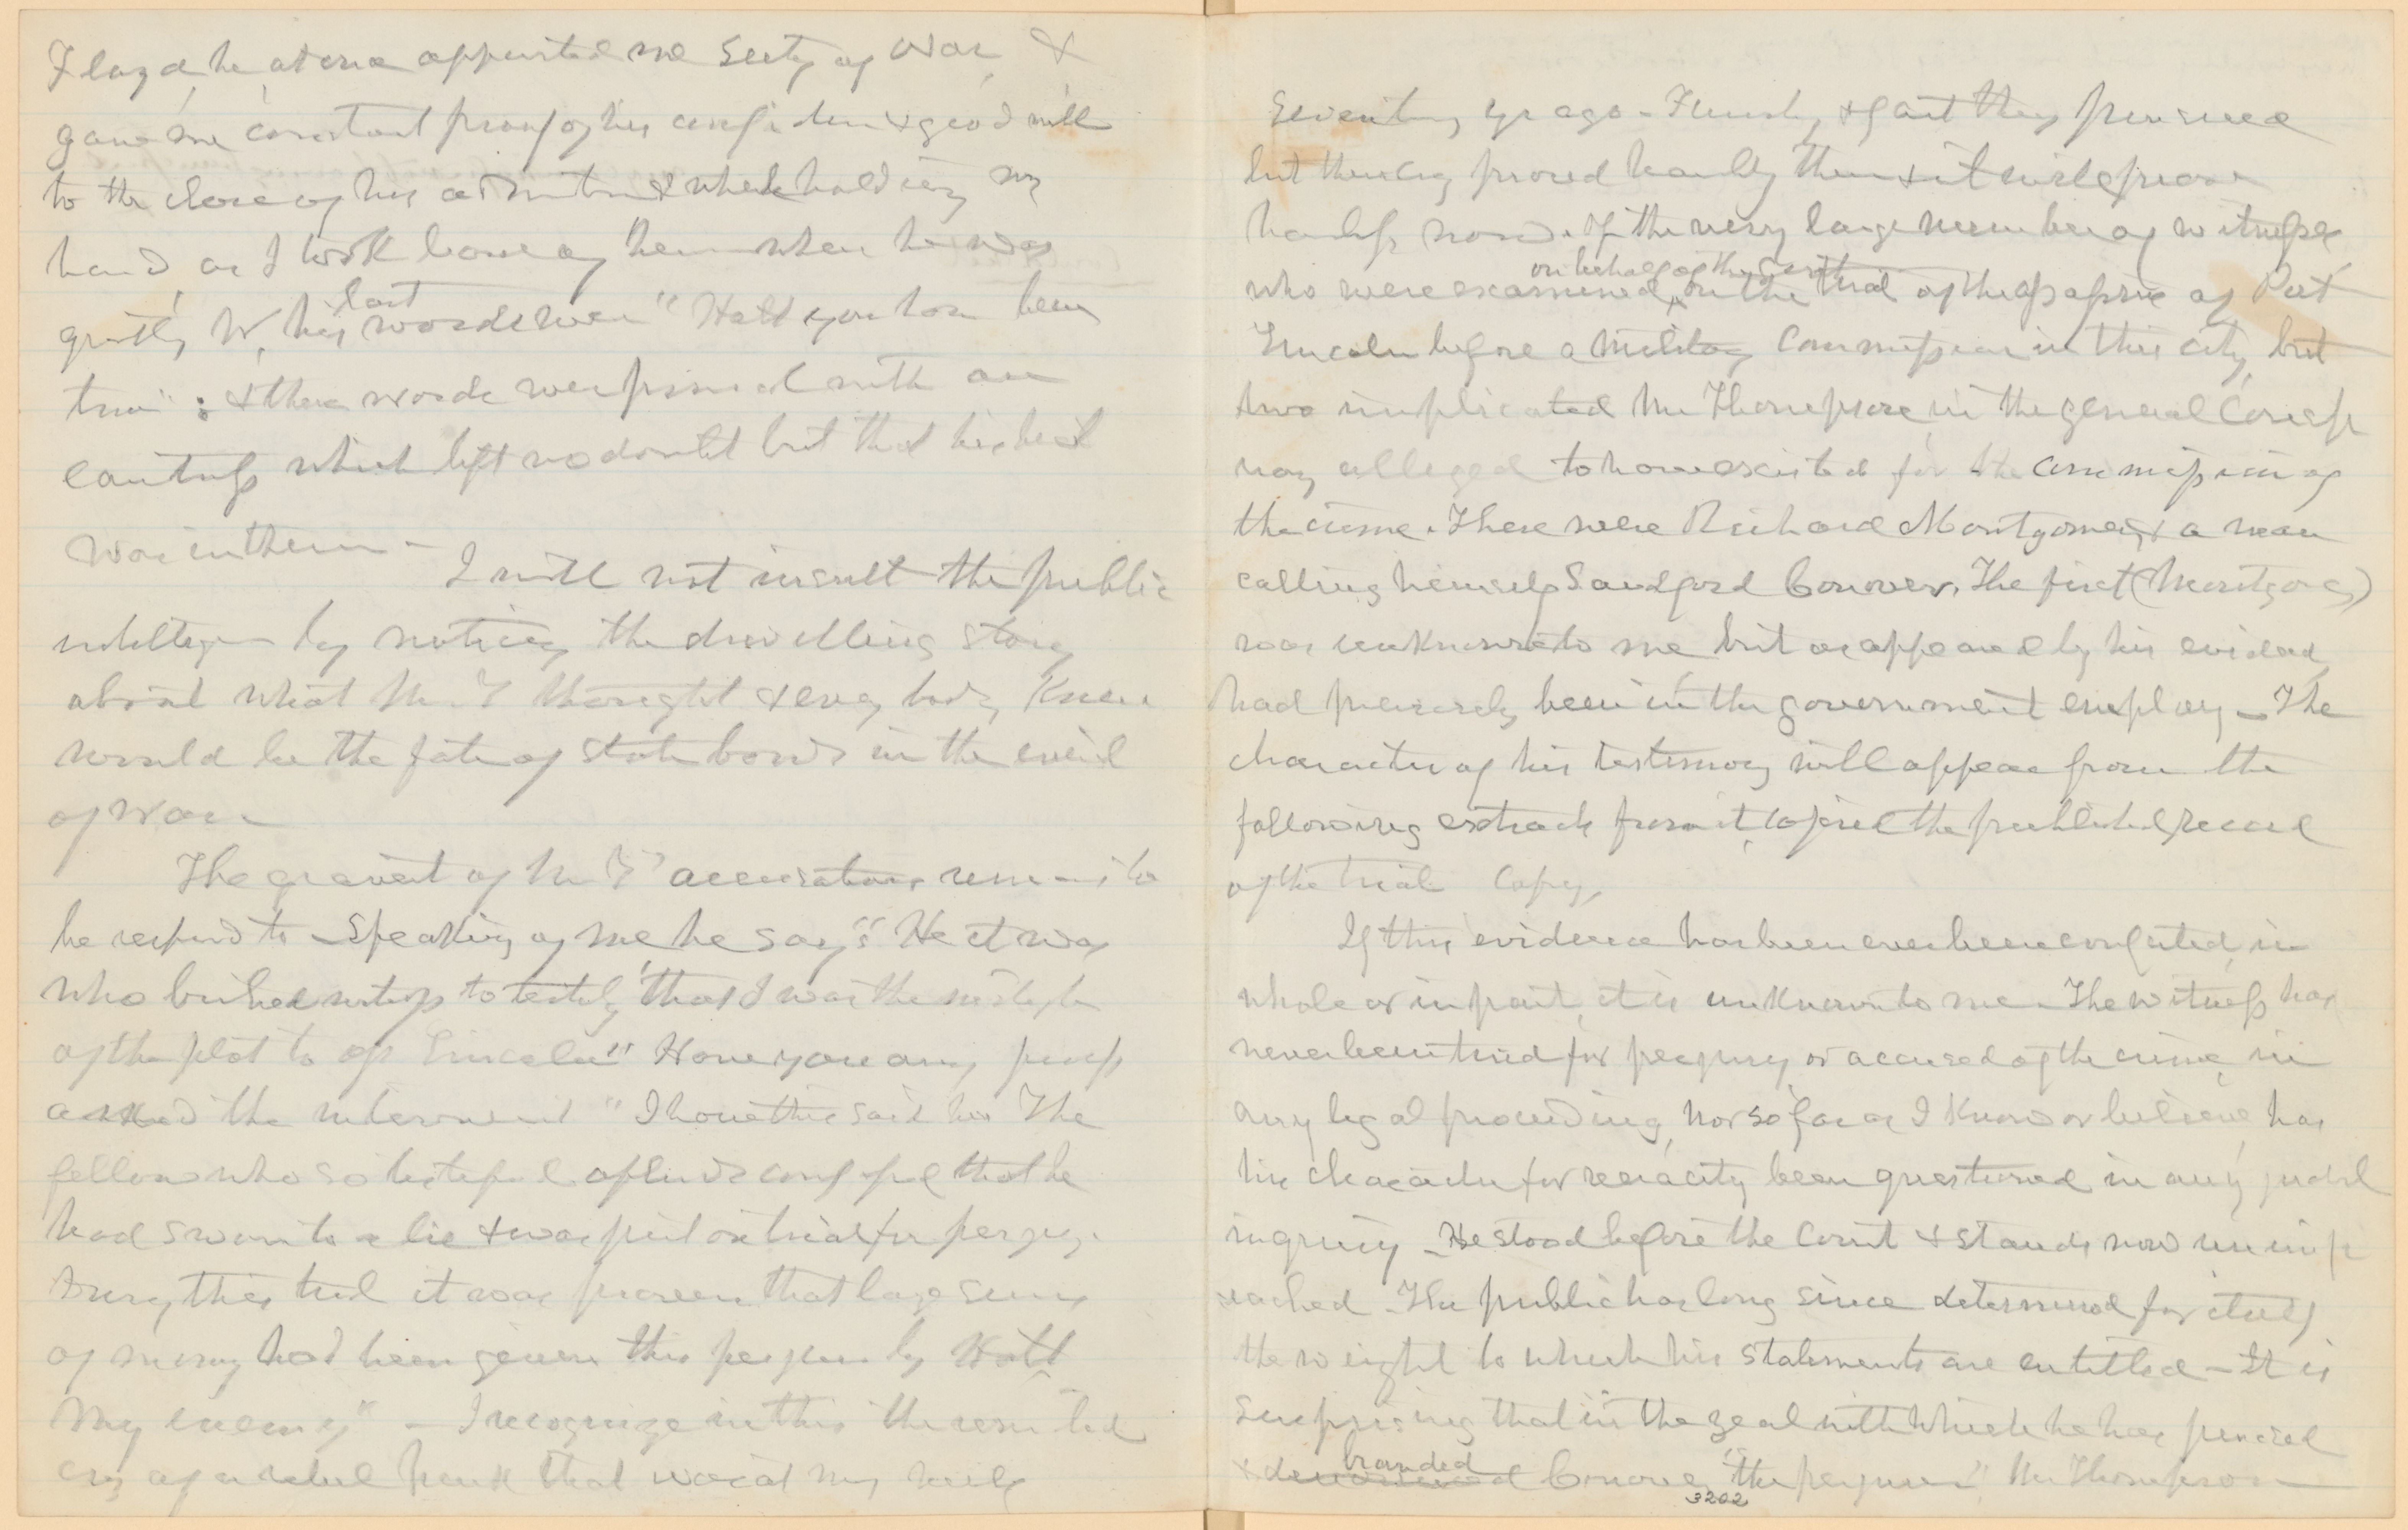 Floyd, he at once appointed me Secty of War, &
gave me constant proof of his confidence & good will
to the close of his admtn & while holding my
hand, as I took leave of him when he was
last
greatly W, his words were "Holt you have been
true": & these words were pronounced with an
earnestness which left no doubt but that his heart
was in them -
I will not insult the public
intelligence by noticing the drivelling story
about what Mr T thought & every body knew
would be the fate of State bonds in the event
of war
The gravest of Mr T's accusations remains to
be respond to - Speaking of me he says "He it was
who bribed witness to testify that I was the instigator
of the plot to ass Lincoln" Have you any proofs
asked the interviewer "I have this said he. The
fellow who so testified afterwds confessed that he
had sworn to a lie & was put on trial for perjury.
During this trial it was proven that large sums
of money had been given this perjurer by Holt
my enemy" - I recognize in this the
cry of a rebel pack that was at my heels
Seventeen yrs ago - Fiercely & fast they pursued
but their cry proved harmless then & it will prove
harmless now. Of the very large number of witnesses
on behalf of the Govt
who were examined, on the trial of the assassins of Pret
Lincoln before a Military Commission in this city, but
two implicated Mr Thompson in the general Consp
racy alleged to have existed for the commission of
the crime. These were Richard Montgomery & a man
calling himself Sandford Conover. The first (Montgomery)
was unknown to me but as appeared by his evidence,
had previously been in the government employ - The
character of his testimony will appear from the
following extracts from it, copied the published record
of the trial Copy,
If this evidence has been ever been confuted, in
whole or in part, it is unknown to me - The witness has
never been tried for perjury or accused of the crime, in
any legal proceeding, nor so far as I know or believe, has
his character for veracity been questioned in any judicl
inquiry - He stood before the Court & stands now unimp
eached - The public has long since determined for itself
the weight to which his statements are entitled - It is
Surprising that in the zeal with which he has pursued
branded
& denounced Conover "the perjurer", Mr Thompson
3202